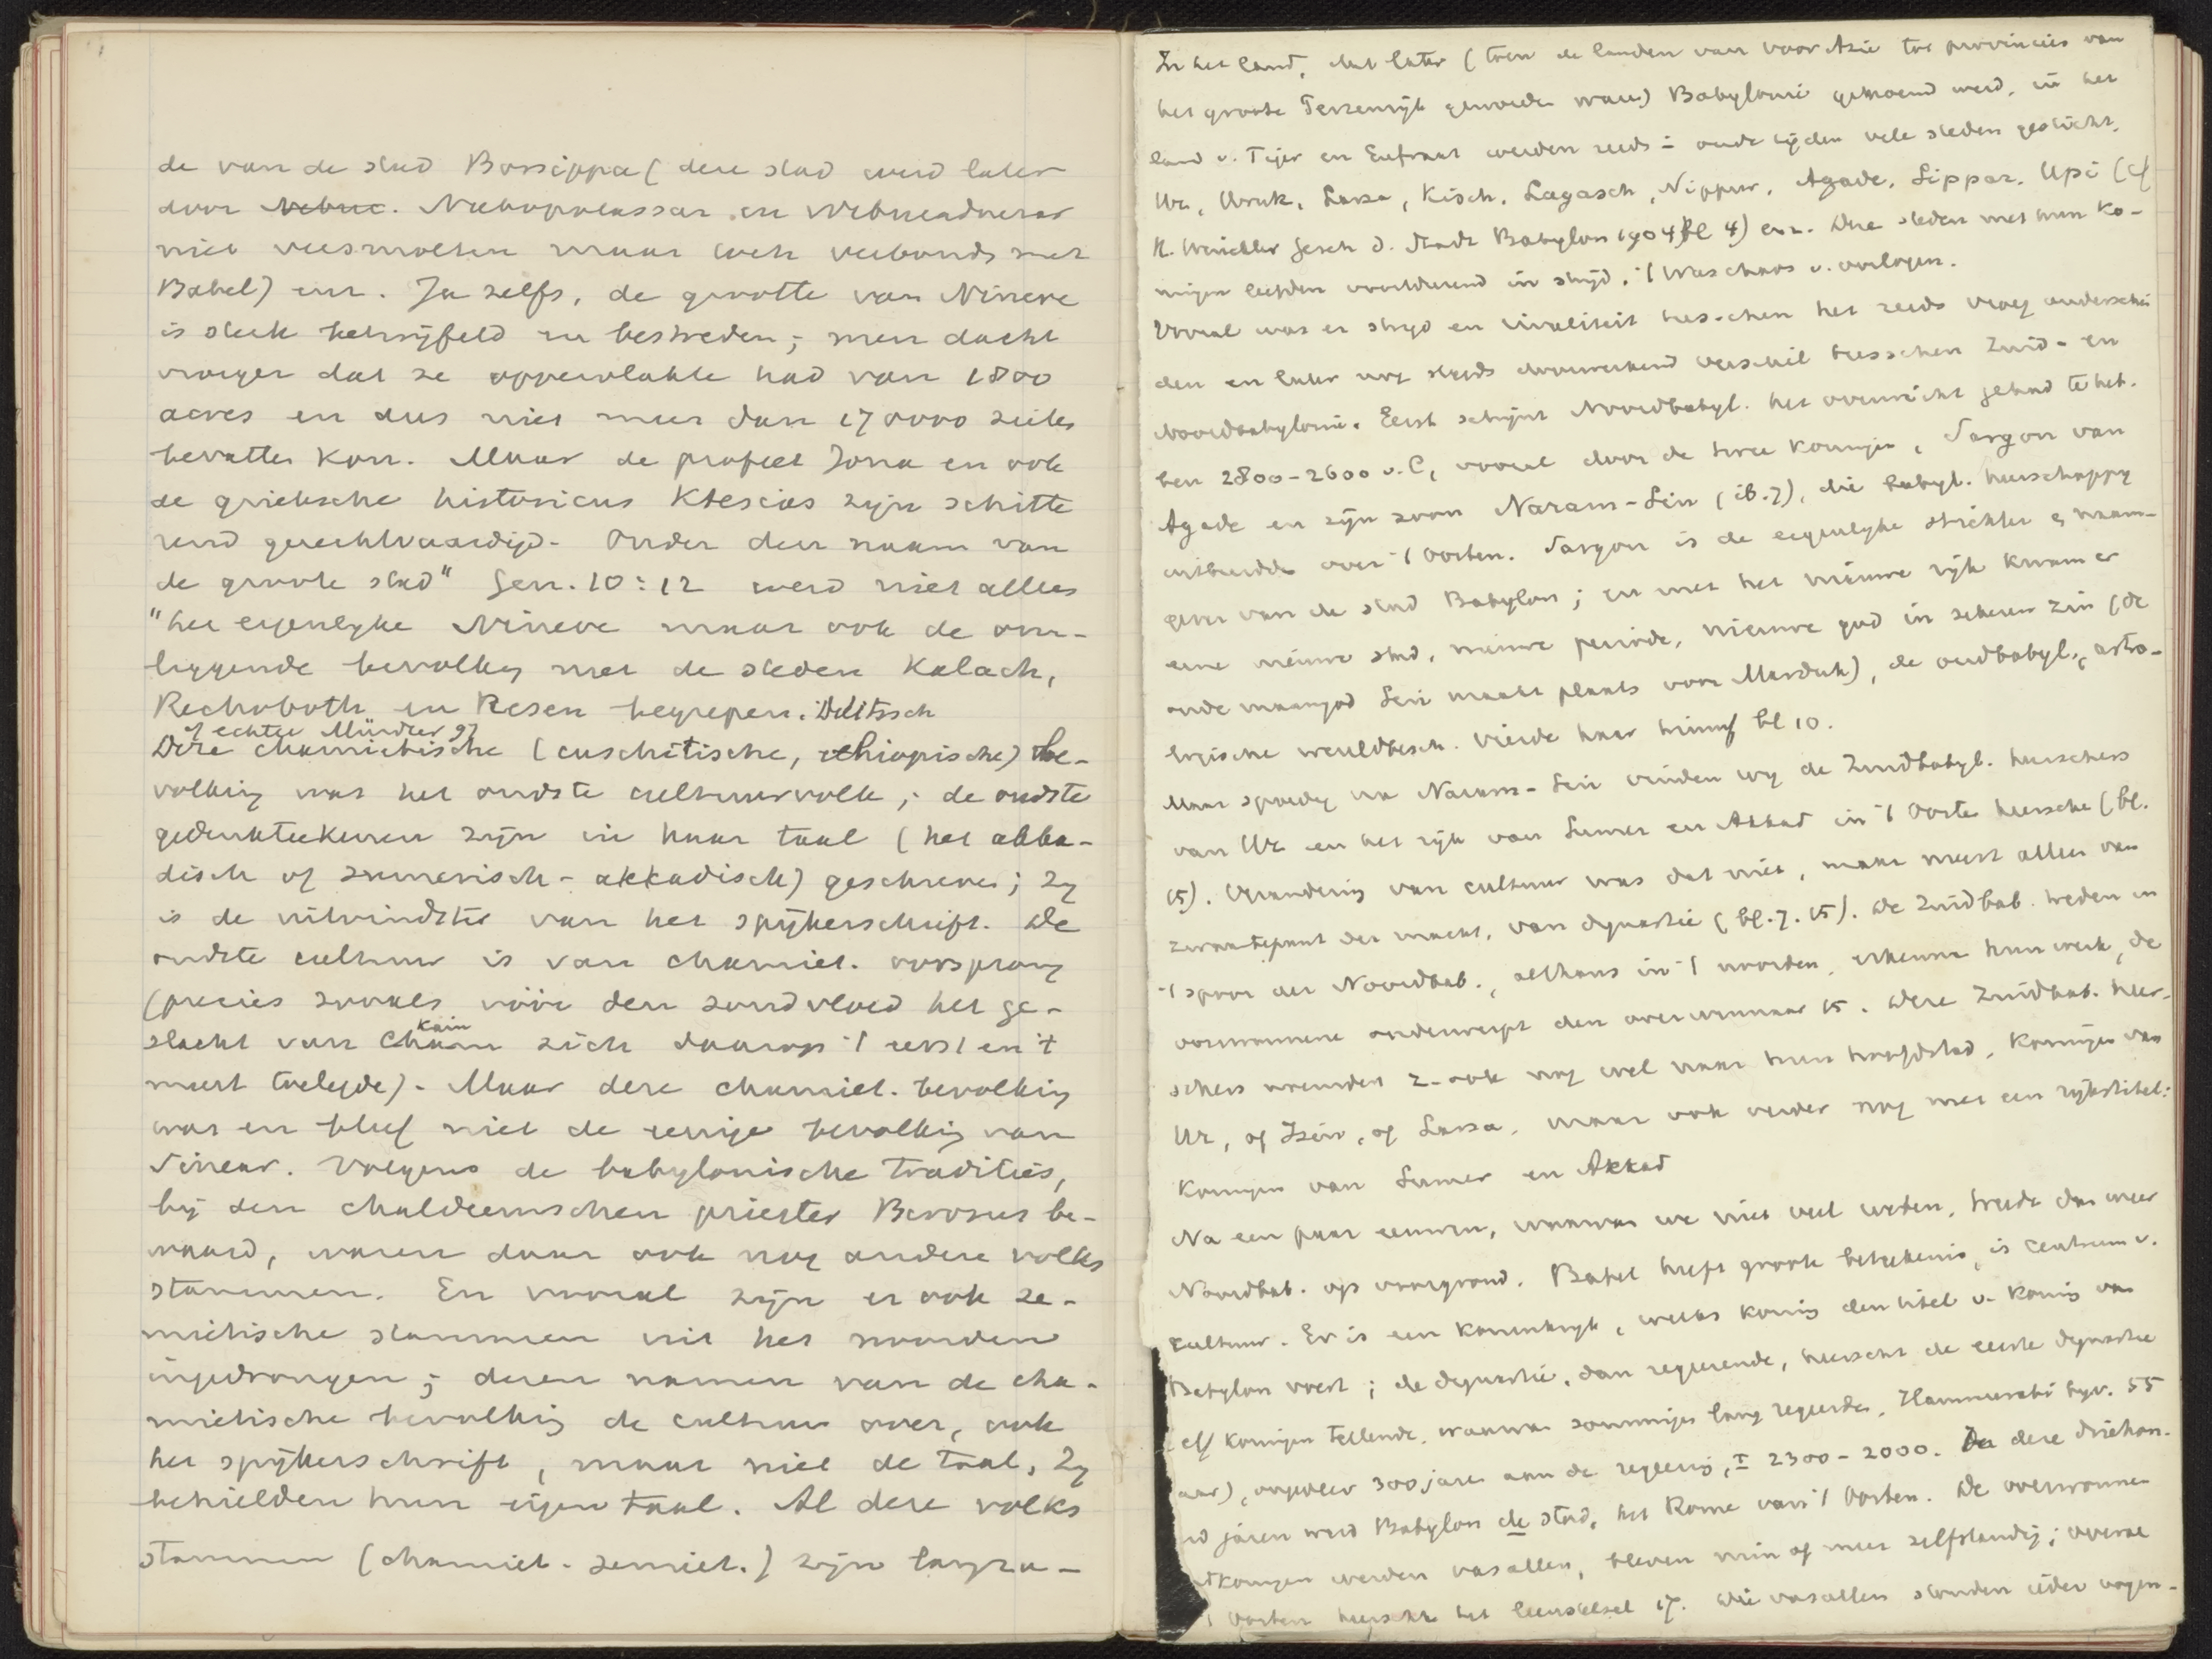 de van de stad Borsippa (deze stad werd later
door Nebuc. Nabopolassar en Nebucadnezar
niet versmolten maar toch verbonden met
Babel) enz. Ja zelfs, de grootte van Nineve
is sterk betwijfeld en bestreden; men dacht
vroeger dat ze oppervlakte had van 1800
acres en dus niet meer dan 170000 zielen
bevatten kon. Maar de profeet Jona en ook
de grieksche historicus Ktesias zijn schitte
rend gerechtvaardigd. Onder den naam van
de groote stad" Gen. 10:12 werd niet alleen
"het eigenlyke Nineve maar ook de om-
liggende bevolking met de steden Kalach,
Rechoboth en Resen begrepen. Delitzsch
of echter Mürdter 97
Deze chamietische (cuschitische, ethiopische) be-
volking was het oudste cultuurvolk; de oudste
gedenkteekenen zijn in haar taal (het akka-
disch of sumerisch-akkadisch) geschreven; zy
is de uitvindster van het spijkerschrift. De
oudste cultuur is van chamiet. oorsprong
(precies zooals vóór den zondvloed het ge-
slacht van Cham kain zich daarop 't eerst en 't
meest toelegde). Maar deze chamiet. bevolking
was en bleef niet de eenige bevolking van
Sinear. Volgens de babylonische traditiës,
bij den chaldeeuwschen priester Berosus be-
waard, waren daar ook nog andere volks
stammen. En vooral zijn er ook se-
mietische stammen uit het noorden
ingedrongen; dezen namen van de cha-
mietische bevolking de cultuur over, ook
het spijkerschrift, maar niet de taal. Zy
behielden hun eigen taal. Al deze volks
stammen (chamiet. semiet.) zijn langza-
In het land, dat later (toen de landen van voor Azie tot provincies van
het groote Perzenrijk geworden waren) Babylonië genoemd werd, in het
land v. Tiger en Eufraat werden reeds in oude tijden vele steden gesticht.
Ur, Uruk, Larsa, Kisch, Lagasch, Nippur, Agade, Sippar, Upi (cf
H. Winckler Gesch d. Stadt Babylon 1904 bl 4) enz. Deze steden met hun ko-
ningen leefden voortdurend in strijd. 't Was chaos v. oorlogen.
Vooral was er strijd en rivaliteit tusschen het reeds vroeg onderschei
den en later nog steeds doorwerkend verschil tusschen Zuid- en
Noordbabylonië. Eerst schijnt Noordbabyl. het overwicht gehad te heb.
ben 2800-2600 v. C, vooral door de twee koningen, Sargon van
Agade en zijn zoon Naram-Sin (ib. 7), die babyl. heerschappy
uitbreidde over 't Oosten. Sargon is de eigenlyke stichter en naam-
gever van de stad Babylon; en met het nieuwe rijk kwam er
eene nieuwe stad, nieuwe periode, nieuwe god in zekeren zin (de
oude maangod Sin maakt plaats voor Marduk), de oudbabyl. astro-
logische wereldbesch. vierde haar triumf bl 10.
Maar spoedig na Naram-Sin vinden wy de Zuidbabyl. heerschers
van Ur en het rijk van Sumer en Akkad in 't Oosten heersche (bl.
15). Verandering van cultuur was dat niet, maar meest alleen van
zwaartepunt der macht, van dynastie (bl. 7. 15). De Zuidbab. treden in
't spoor der Noordbab., althans in 't noorden, erkennen hun werk, de
overwonnene onderwerpt den overwinnaar 15. Deze Zuidbab. heer-
schers noemden z. ook nog wel naar hun hoofdstad, koningen van
Ur, of Isin, of Larsa, maar ook verder nog met een rijkstitel:
koningen van Sumer en Akkad
Na een paar eeuwen, waarvan we niet veel weten, treedt dan weer
Noordbab. op voorgrond. Babel heeft groote beteekenis, is centrum v.
cultuur. Er is een koninkryk, welks koning den titel v. koning van
Babylon voert; de dynastie, dan regeerende, heerscht de eerste dynastie
elf koningen tellende, waarvan sommigen lang regeerden, Hammurabi byv. 55
aar), ongeveer 300 jaren aan de regeering, ± 2300-2000. In deze driehon-
rd jaren werd Babylon de stad, het Rome van 't Oosten. De overwonnen
koningen werden vasallen, bleven min of meer zelfstandig; overal
't Oosten heerscht het leenstelsel 17. Die vasallen stonden ieder oogen-